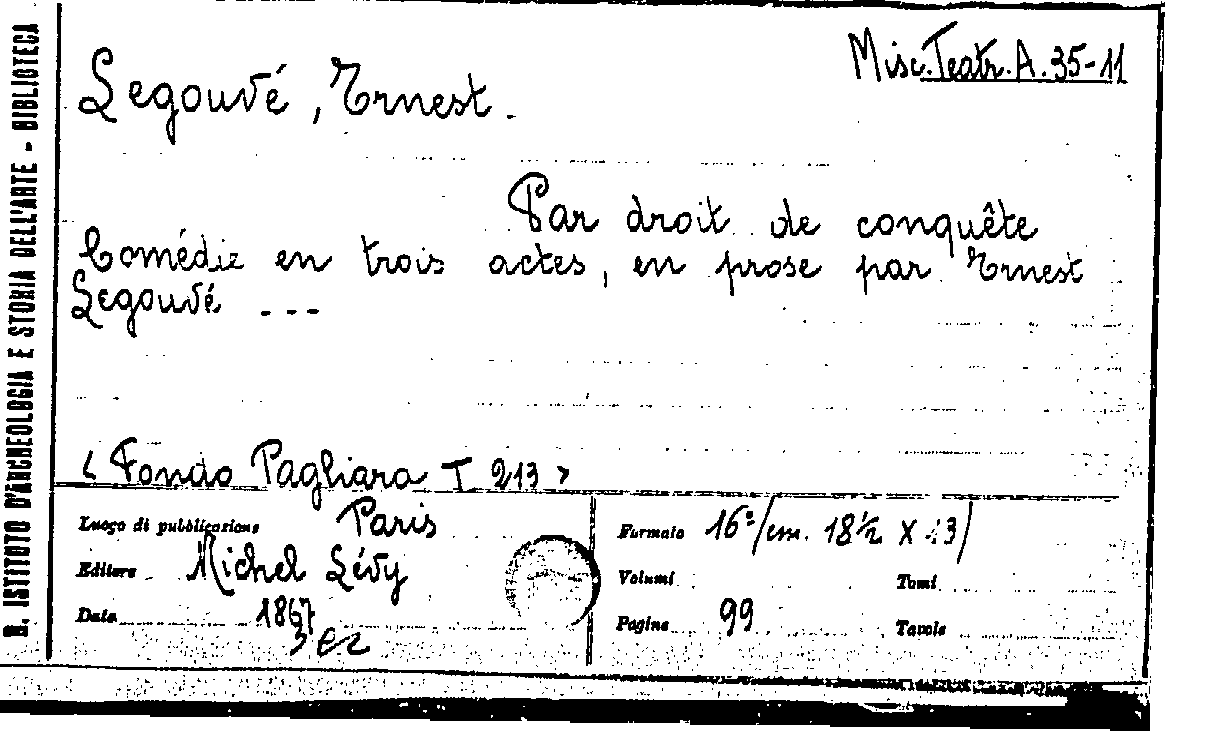 R. ISTITUTO D'ARCHEOLOGIA E STORIA DELL'ARTE - BIBLIOTECA
Misc. Teatr. A. 35-11
Legouvé, Ernest.
Par droit de conquête
Comédie en trois actes, en prose par Ernest
Legouvé ---
< Fondo Pagliara T 213 >
Luogo di pubblicazione Paris
Editore Michel Lévy
Data 1867
Formato 16º/cm. 18½ X 13/
Volumi
Tomi
Pagine 99
Tavole